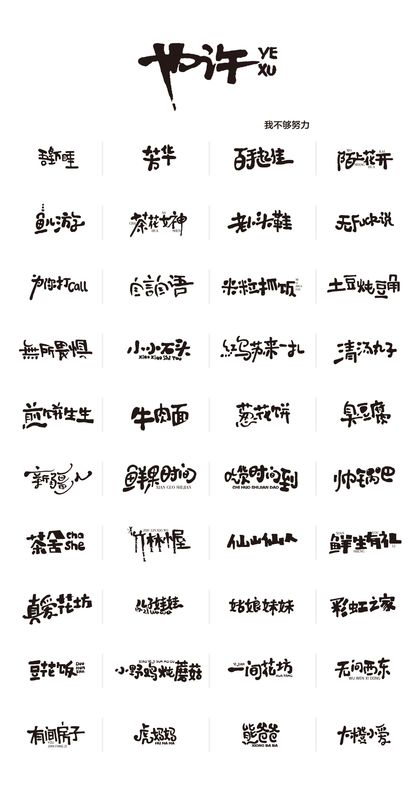 也许 YE XU
我不够努力
陌上花开
鱼儿游
茶花女神
老头鞋
无Fuck说
为你打call
自言自语
米粒抓饭
土豆炖豆角
無所畏惧
小小石头
Xiao Xiao Shi Tou
红乌苏来一扎
清汤丸子
煎饼生生
牛肉面
葱花饼
臭豆腐
新疆人
鲜果时间
XIAN GUO SHIJIAN
吃货时间到
CHI HUO SHIJIAN DAO
帅锅吧
茶舍 cha she
竹林小屋
仙山仙人
鲜生有礼
真爱花坊
姑娘妹妹
彩虹之家
豆花饭
小野鸡炖蘑菇
一间花坊
无问西东
WU WEN XI DONG
有间房子
虎妈妈
HU MA MA
熊爸爸
XIONG BA BA
大橙小爱